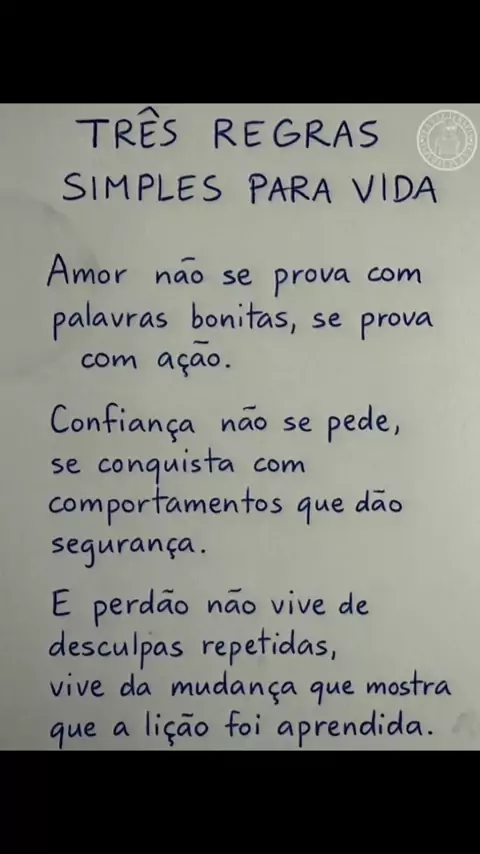 TRÊS REGRAS
SIMPLES PARA VIDA
Amor não se prova com
palavras bonitas, se prova
com ação.
Confiança não se pede,
se conquista com
comportamentos que dão
segurança.
E perdão não vive de
desculpas repetidas,
vive da mudança que mostra
que a lição foi aprendida.